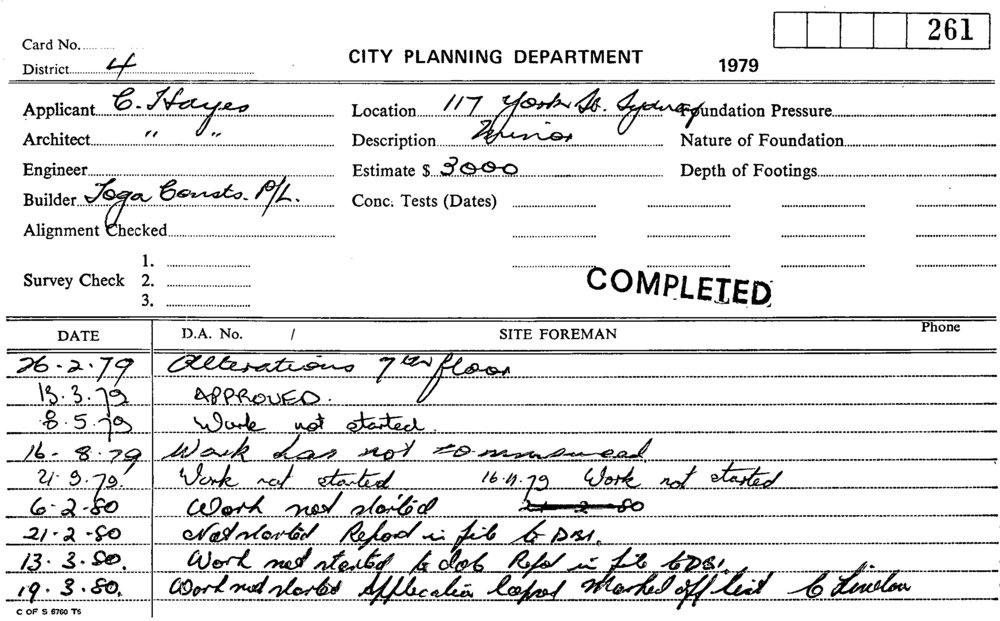 261
Card No.
District 4
CITY PLANNING DEPARTMENT
1979
Applicant C. Hayes
Location 117 York St. Sydney
Foundation Pressure
Architect " "
Description Minor
Nature of Foundation
Engineer
Estimate $ 3000
Depth of Footings
Builder Toga Consts. P/L.
Conc. Tests (Dates)
Alignment Checked
Survey Check 1. 2. 3.
COMPLETED
DATE D.A. No. / SITE FOREMAN Phone
26.2.79 Alterations 7th floor
13.3.79 APPROVED.
8.5.79 Work not started.
16-8.79 Work has not commenced
21.9.79. Work not started 16.11.79 Work not started
6-2-80 Work not started
21-2-80 Not started Report in file to DBI.
13.3.80. Work not started to date Report in file to DBI.
19.3.80. Work not started Application lapsed Marked off list C
C OF S 6760 T5